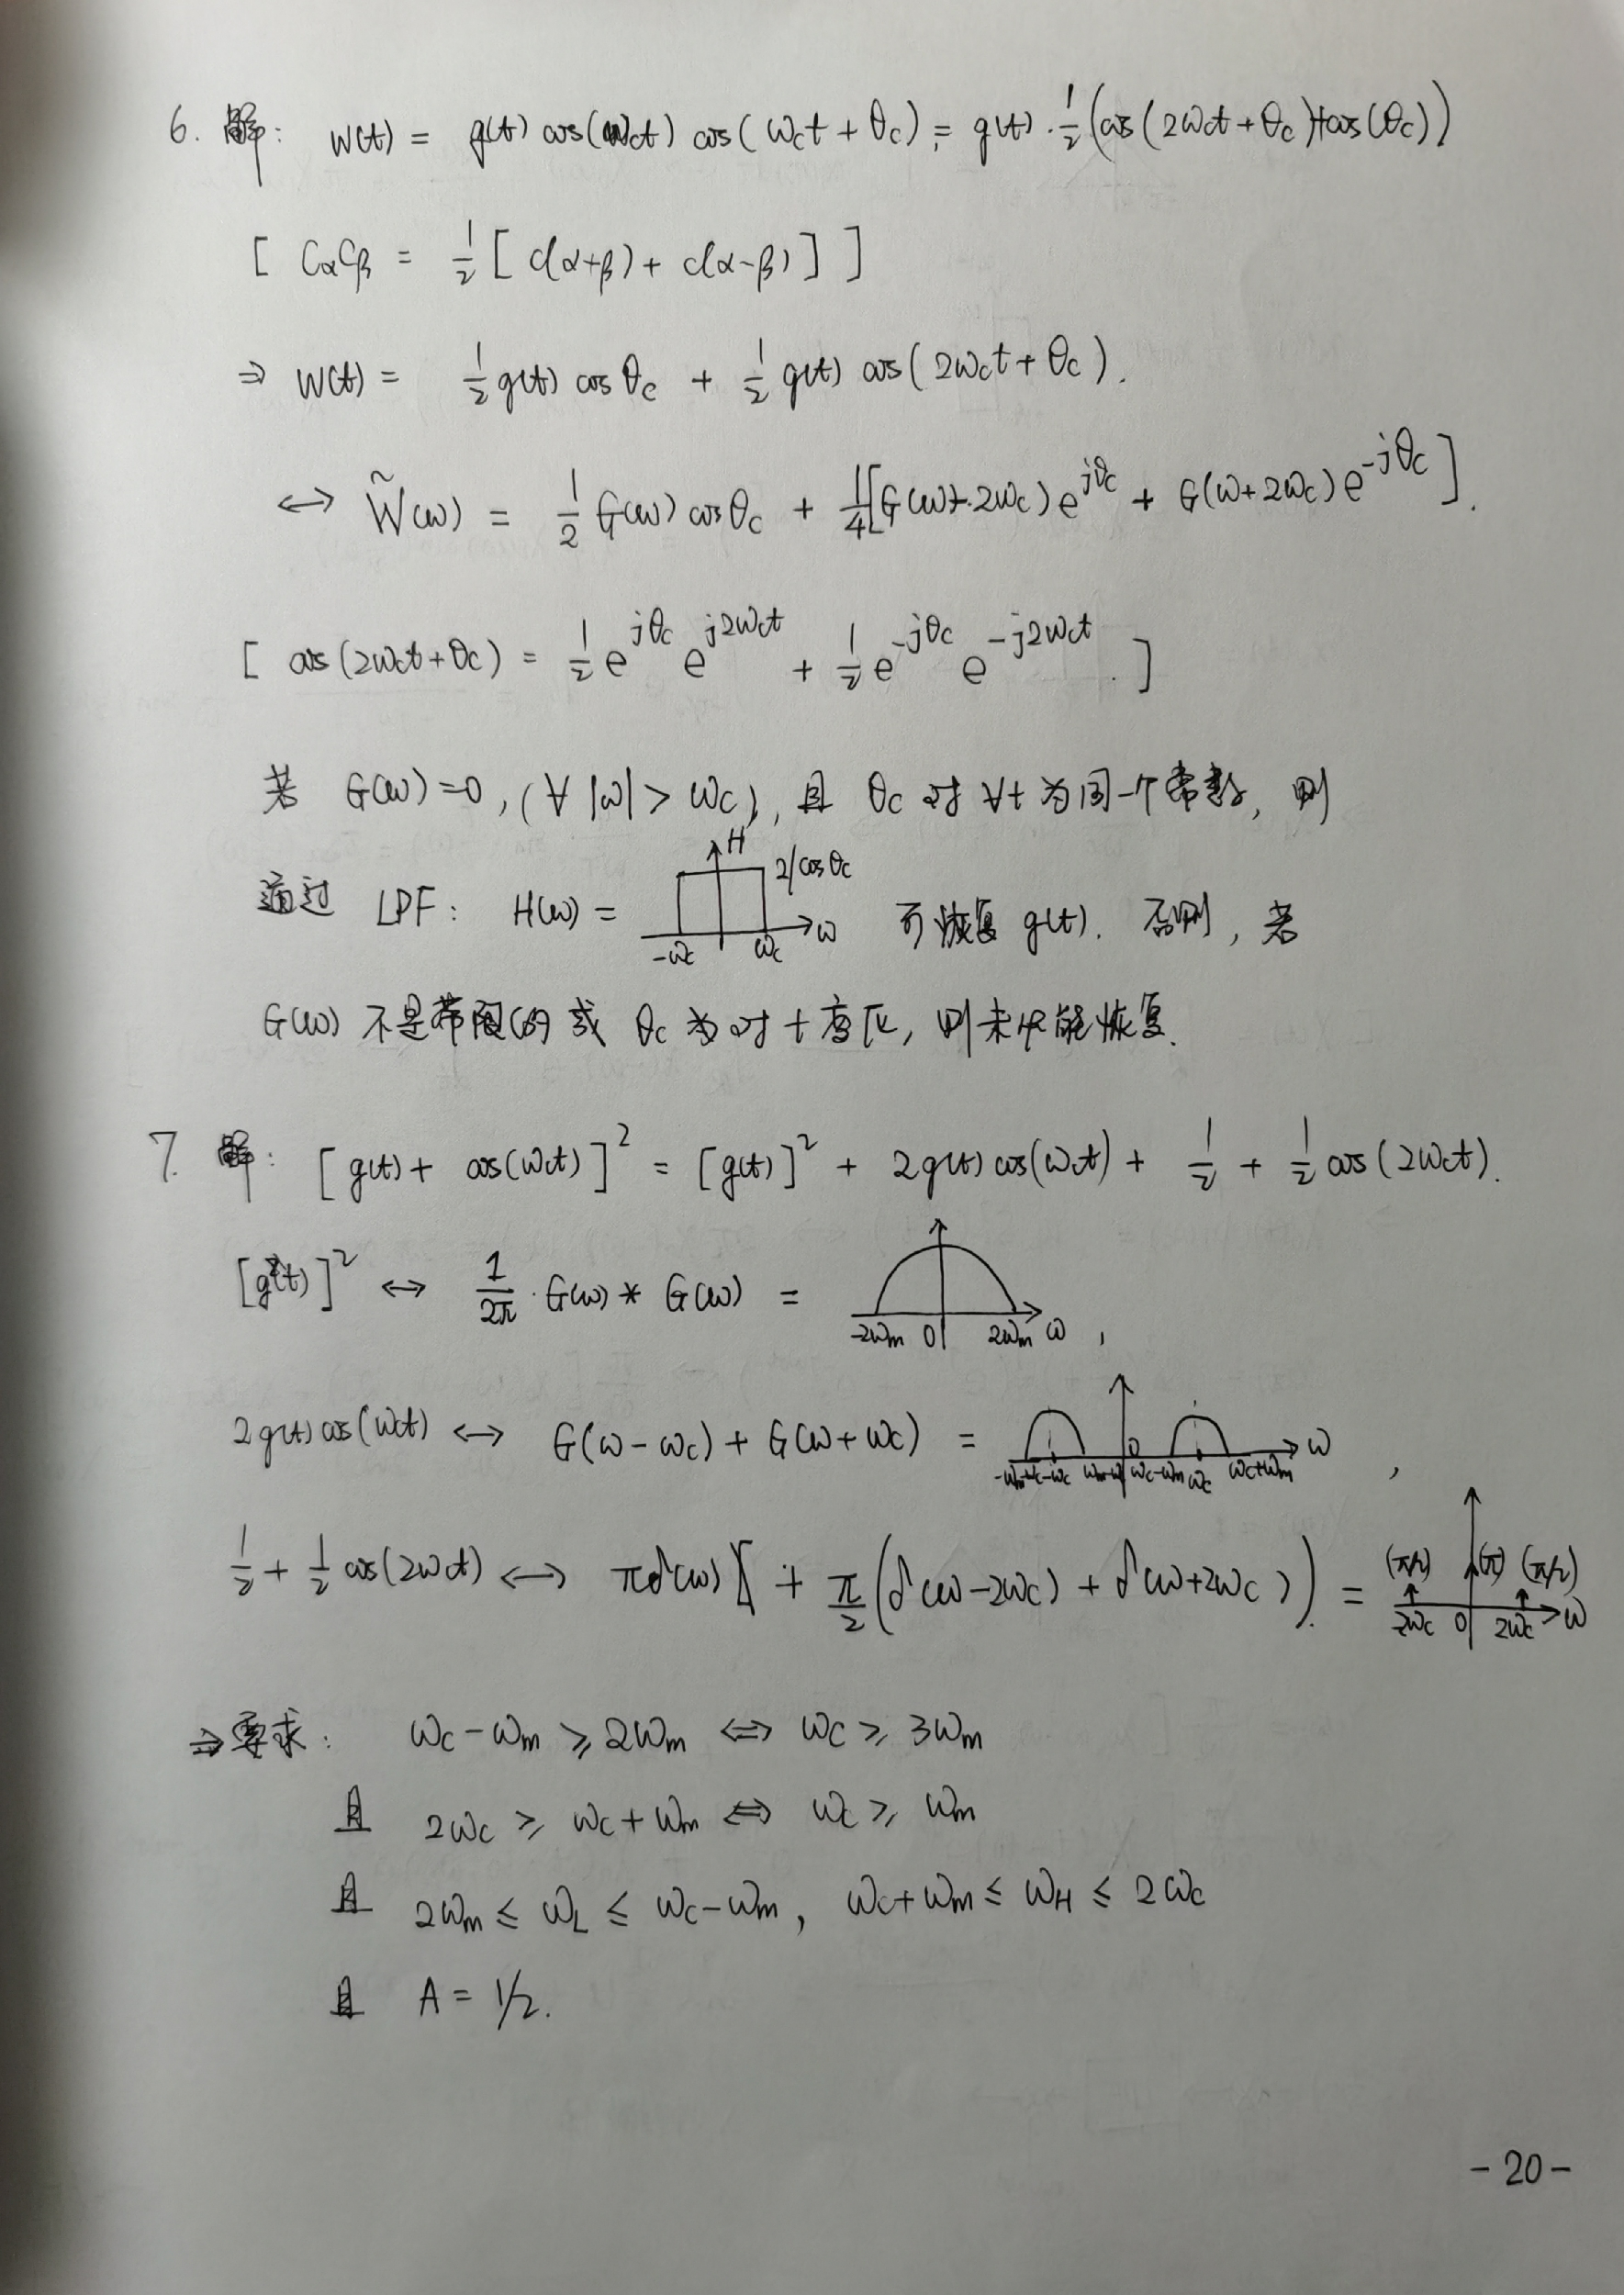 6. 解: W(t) = g(t) cos(ωct) cos(ωct + θc) = g(t) · 1/2 (cos(2ωct + θc)+cos(θc))
[ CαCβ = 1/2 [ C(α+β) + C(α-β) ] ]
⇒ W(t) = 1/2 g(t) cos θc + 1/2 g(t) cos(2ωct + θc).
↔ W̃(ω) = 1/2 G(ω) cosθc + 1/4 [G(ω-2ωc) e^{jθc} + G(ω+2ωc) e^{-jθc}].
[ cos(2ωct+θc) = 1/2 e^{jθc} e^{j2ωct} + 1/2 e^{-jθc} e^{-j2ωct}. ]
若 G(ω)=0, (∀ |ω| > ωc), 且 θc 对 ∀t 为同一个常数, 则
H
2/cosθc
通过 LPF: H(ω) = ω 可恢复 g(t). 否则, 若
-ωc ωc
G(ω) 不是带限的 或 θc 为对 t 变化, 则未必能恢复.
7. 解: [g(t) + cos(ωct)]² = [g(t)]² + 2g(t) cos(ωct) + 1/2 + 1/2 cos(2ωct).
[g(t)]² ↔ 1/2π · G(ω) * G(ω) =
-2ωm 0 2ωm ω ,
2g(t) cos(ωct) ↔ G(ω-ωc) + G(ω+ωc) = ω ,
-ωm-ωc -ωc ωm-ωc 0 ωc-ωm ωc ωc+ωm
1/2 + 1/2 cos(2ωct) ↔ πδ(ω) + π/2 (δ(ω-2ωc) + δ(ω+2ωc)). = (π/2) (π) (π/2)
2ωc 0 2ωc ω
⇒ 要求: ωc - ωm ≥ 2ωm ⇔ ωc ≥ 3ωm
且 2ωc ≥ ωc + ωm ⇔ ωc ≥ ωm
且 2ωm ≤ ωL ≤ ωc-ωm, ωc+ωm ≤ ωH ≤ 2ωc
且 A = 1/2.
-20-